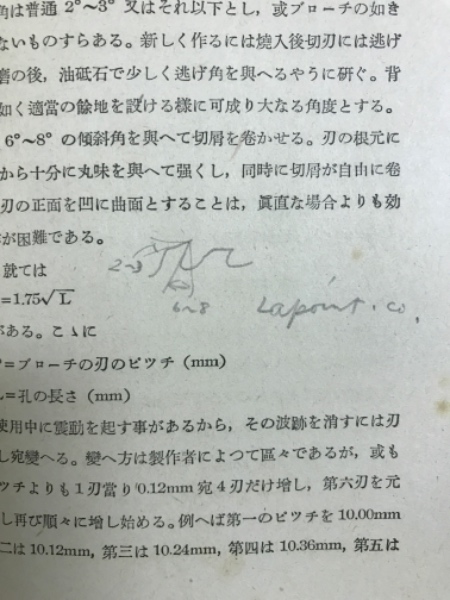 角は普通 2°〜3° 又はそれ以下とし，或ブローチの如き
ないものすらある。新しく作るには燒入後切刃には逃げ
磨の後，油砥石で少しく逃げ角を與へるやうに研ぐ。背
如く適當の餘地を設ける樣に可成り大なる角度とする。
6°〜8° の傾斜角を與へて切屑を卷かせる。刃の根元に
から十分に丸味を與へて强くし，同時に切屑が自由に卷
刃の正面を凹に曲面とすることは，眞直な場合よりも効
が困難である。
就ては
2~3
=1.75√L
6~8
Lapoint. co.
がある。こゝに
=ブローチの刃のピツチ (mm)
=孔の長さ (mm)
使用中に震動を起す事があるから，その波跡を消すには刃
し宛變へる。變へ方は製作者によつて區々であるが，或も
ツチよりも1刃當り 0.12mm 宛4刃だけ增し，第六刃を元
し再び順々に增し始める。例へば第一のピツチを 10.00mm
二は 10.12mm, 第三は 10.24mm, 第四は 10.36mm, 第五は